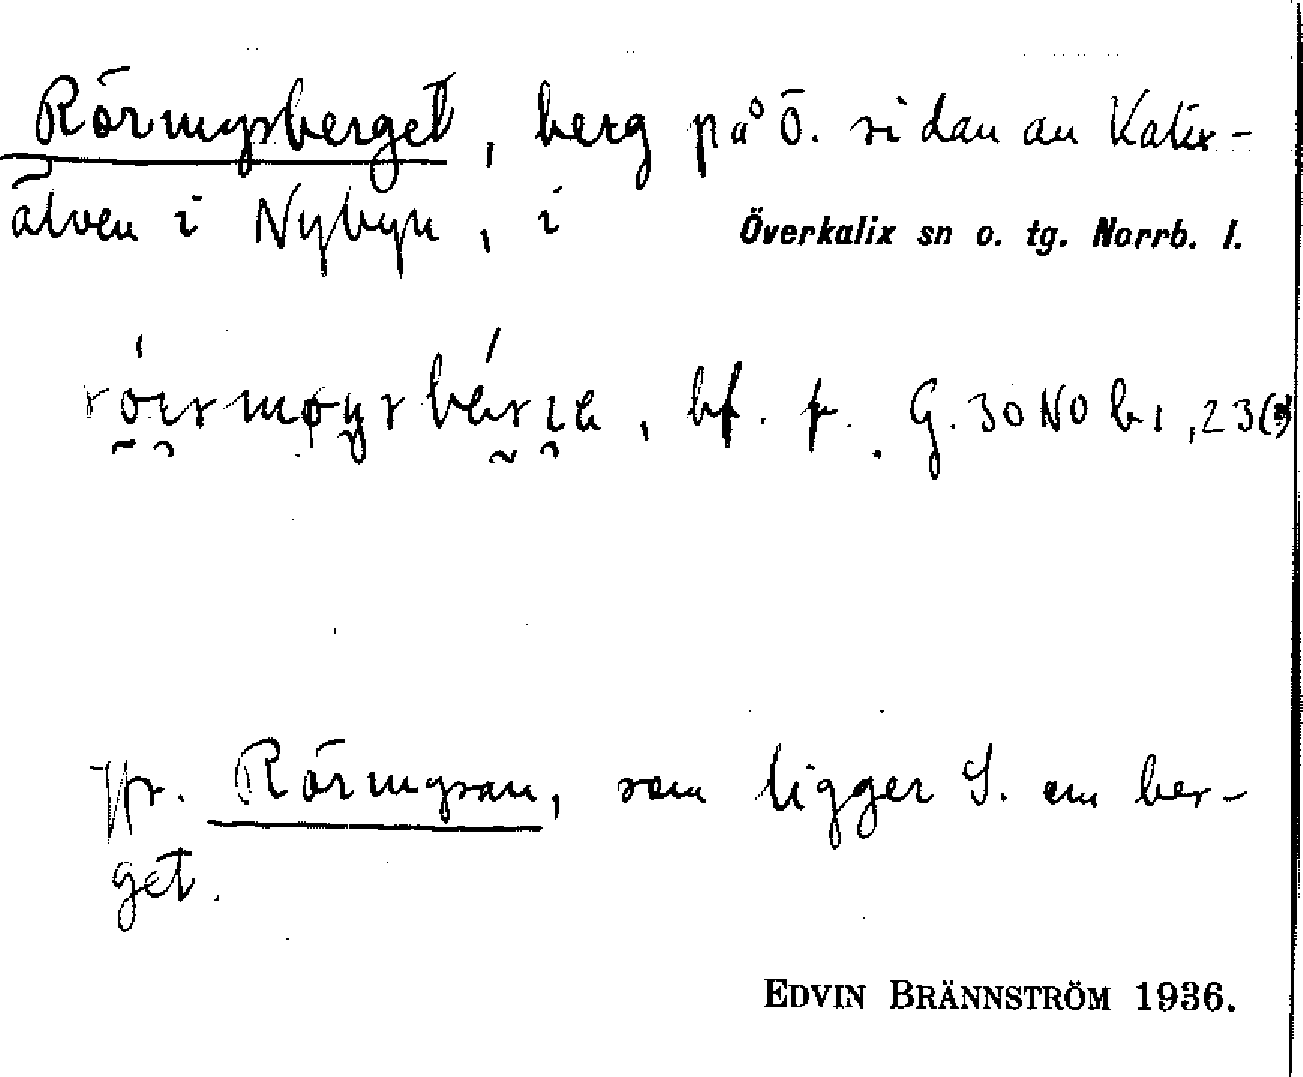 Rörmyrberget, berg på Ö. sidan av Kalix-
älven i Nybyn, i Överkalix sn o. tg. Norrb. l.
bf. f. G. 30 NO b 1, 23(3)
Jfr. Rörmyran, som ligger S. om ber-
get.
EDVIN BRÄNNSTRÖM 1936.